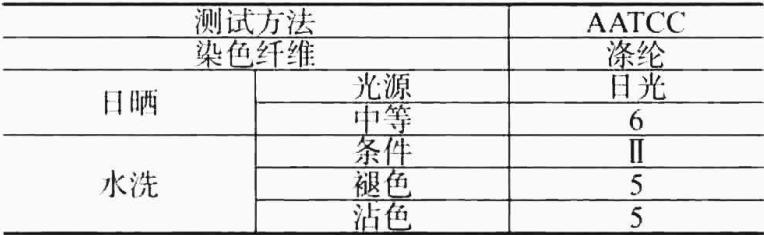 测试方法 AATCC
染色纤维 涤纶
日晒 光源 日光
中等 6
水洗 条件 Ⅱ
褪色 5
沾色 5